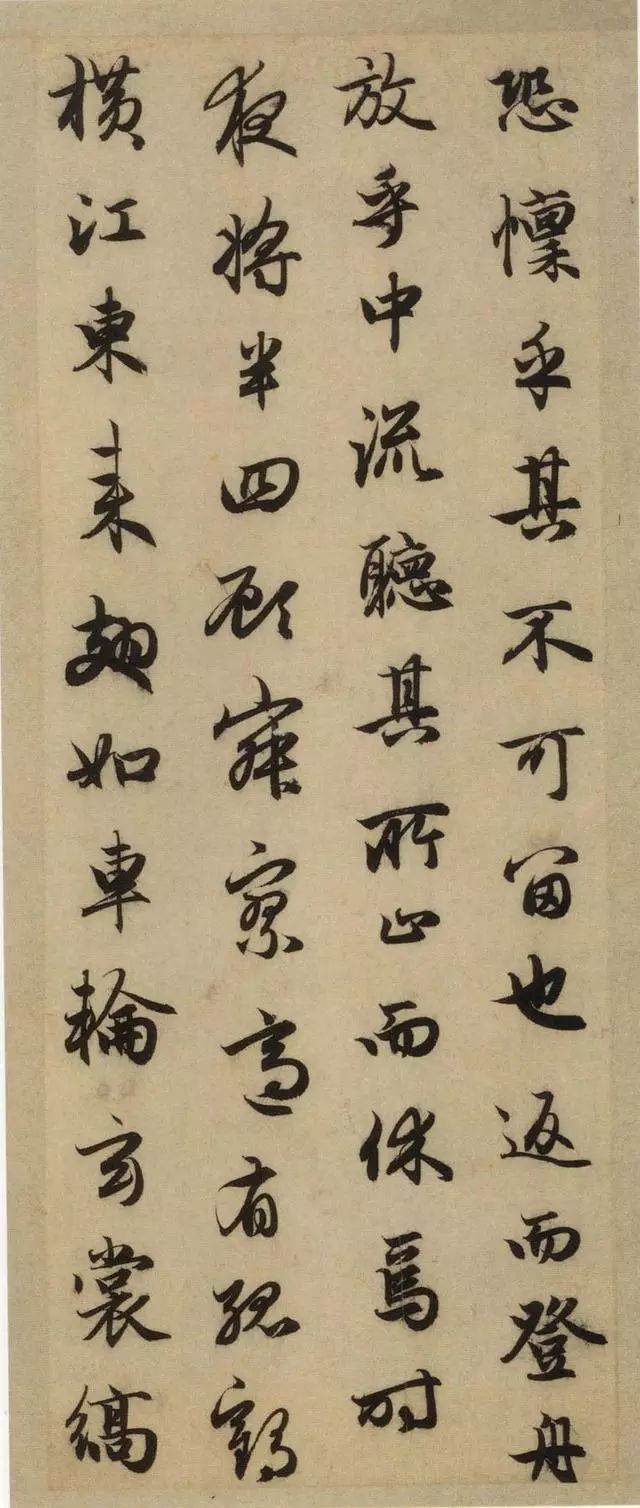 恐懔乎其不可留也返而登舟
放乎中流聽其所止而休焉時
夜將半四顧寂寥適有孤鶴
橫江東来翅如車輪玄裳縞